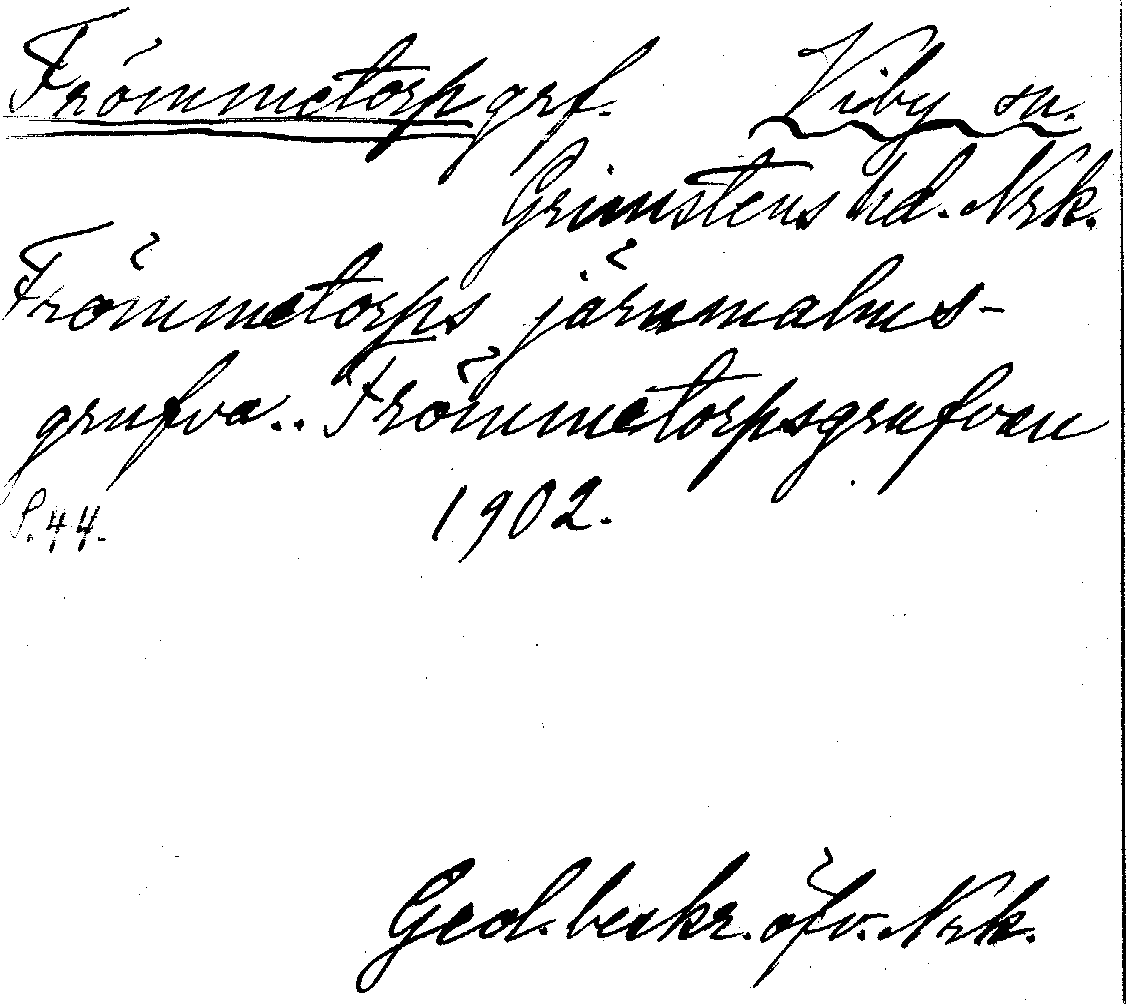 Frömmetorp grf. Viby sn.
Grimstens hd. Nrk.
Frömmetorps järnmalms-
grufva.. Frömmetorpsgrufvan
S.44. 1902.
Geol. beskr. öfv. Nrk.